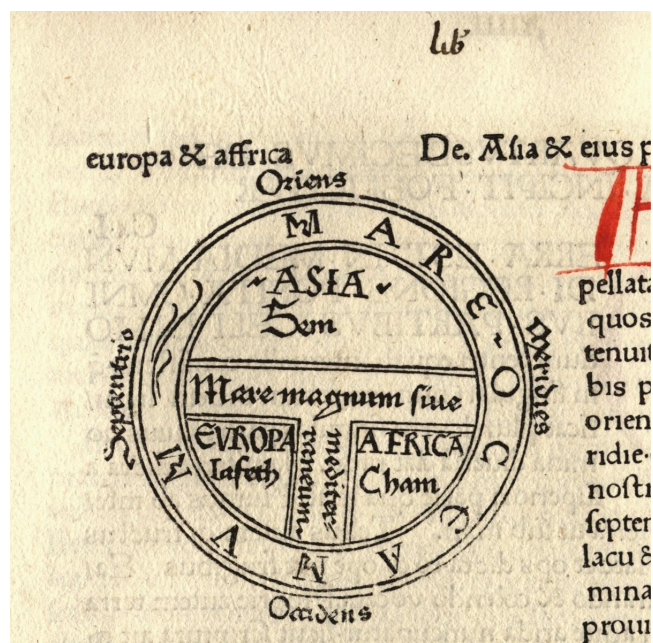 lib
europa & affrica
De. Aſia & eius p
Oriens
MARE·OCCEANVM
ASIA
Sem
Septentrio
Meridies
Mare magnum ſiue
mediterraneum
EVROPA
Iafeth
AFRICA
Cham
Occidens
pellata
quos
tenuit
bis p
orien
ridie.
noſtr
ſepten
lacu &
mina
prouin